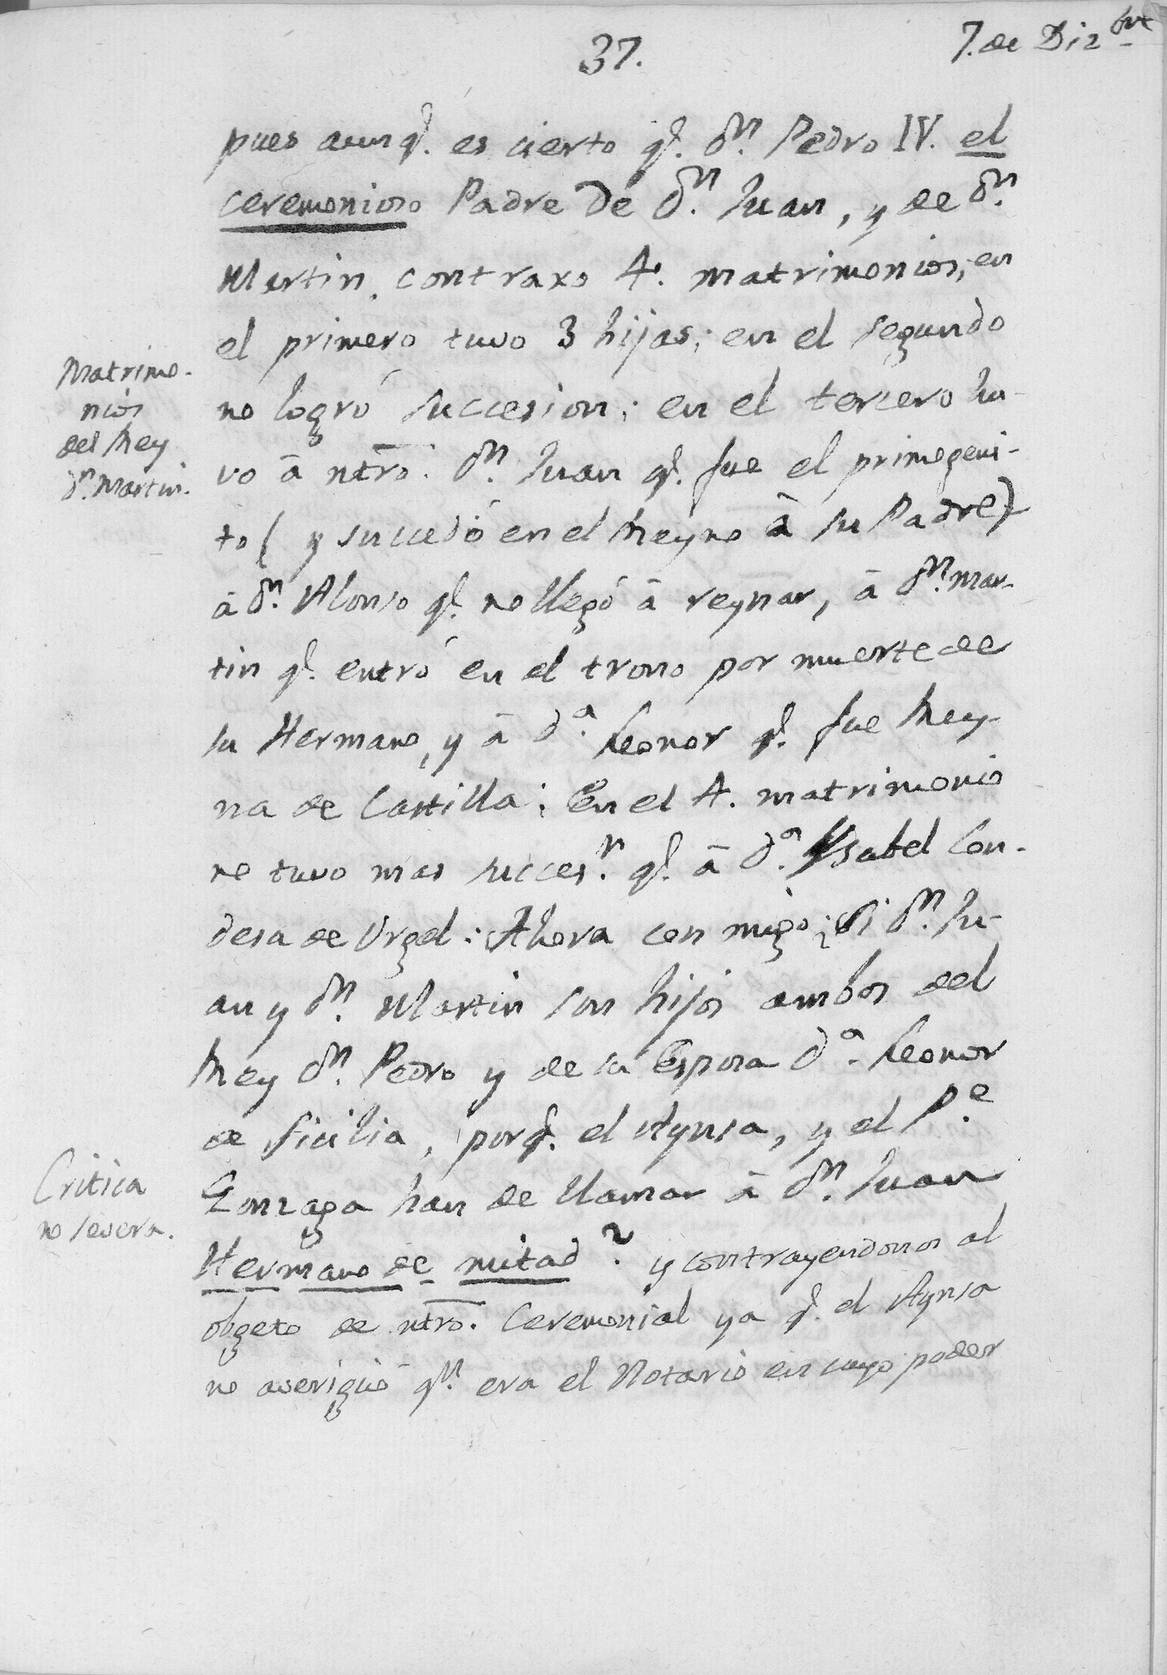 37.
7. de Diz.bre
pues aunq.e es cierto q.e D.n Pedro IV. el
ceremonioso Padre de D.n Juan, y de D.n
Martin, contraxo 4. matrimonios; en
el primero tuvo 3 hijas; en el segundo
no logró succesion; en el tercero hu-
vo â ntro. D.n Juan q.e fue el primogeni-
to ( y succedió en el Reyno â su Padre)
â D.n Alonso q.e no llegó â reynar, â D.n Mar-
tin q.e entró en el trono por muerte de
su Hermano, y â D.a Leonor q.e fue Rey-
na de Castilla; En el 4. matrimonio
no tuvo mas succes.n q.e â D.a Ysabel Con-
desa de Urgel: Ahora con migo; Si D.n Ju-
an y D.n Martin son hijos ambos del
Rey D.n Pedro y de su Esposa D.a Leonor
de Sicilia, porq.e el Aynsa, y el P.e
Gonzaga han de llamar â D.n Juan
Hermano de mitad? y contrayendonos al
objeto de ntro. Ceremonial ya q.e el Aynsa
no averiguô q.n era el Notario en cuyo poder
Matrimo-
nios
del Rey
D.n Martin.
Critica
no severa.